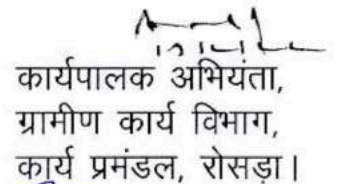 कार्यपालक अभियंता,
ग्रामीण कार्य विभाग,
कार्य प्रमंडल, रोसड़ा।